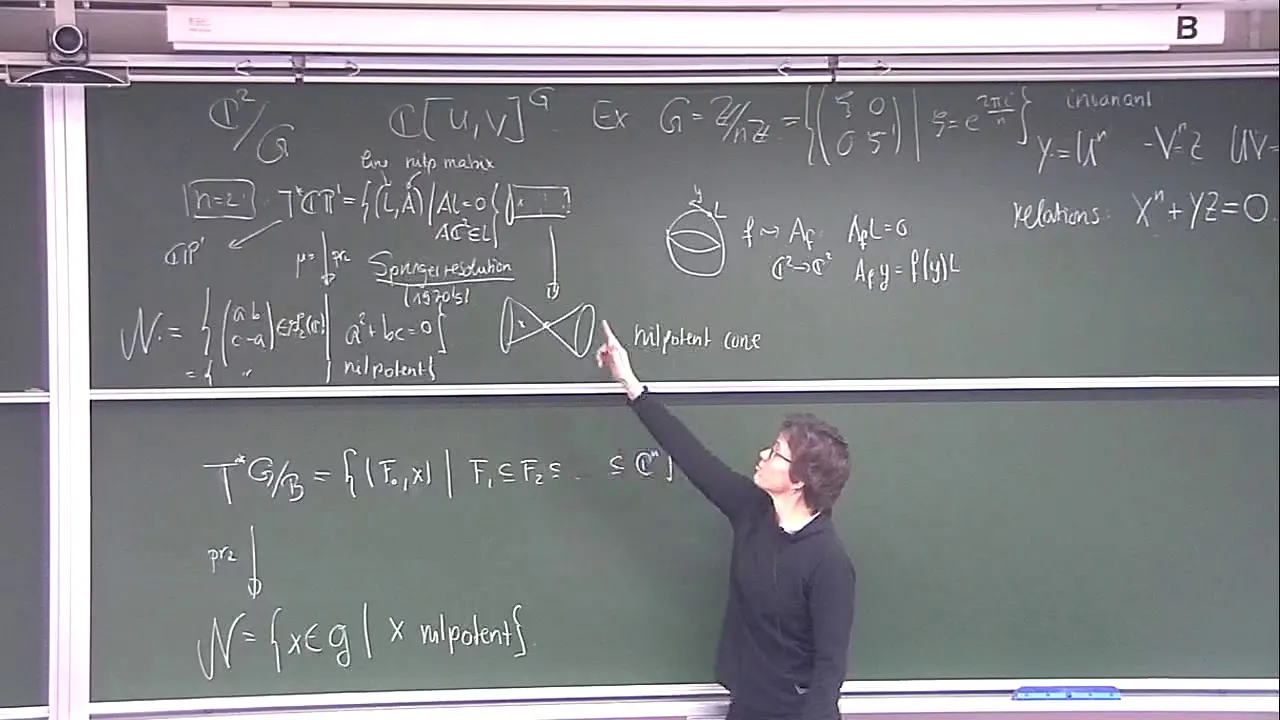 B
ℂ²/G ℂ[u,v]^G Ex G = ℤ/nℤ = {(ξ 0 / 0 ξ⁻¹) | ξ = e^{2πi/n}} invariant
Y = Uⁿ -Vⁿ=Z UV=
relations: Xⁿ + YZ = 0
line nilp matrix
n=2 T*ℂP¹ = {(L,A) | AL=0
Aℂ²⊆L}
ℂP¹
μ= pr₂
Springer resolution
(1970's)
𝒩 = {(a b / c -a) ∈ sl₂(ℂ) | a²+bc=0}
= { " | nilpotent}
y L
f ⇝ A_f A_f L=0
ℂ²→ℂ² A_f y = f(y)L
nilpotent cone
T*G/B = {(F•,x) | F₁ ⊆ F₂ ⊆ ... ⊆ ℂⁿ}
pr₂
𝒩 = {x∈g | x nilpotent}